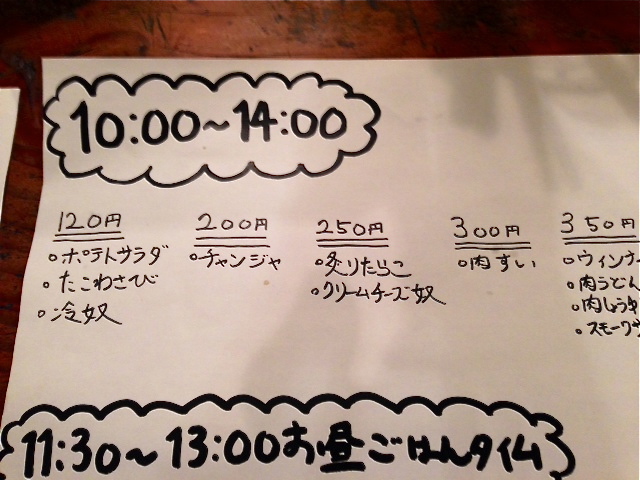 10:00~14:00
120円
ポテトサラダ
たこわさび
冷奴
200円
チャンジャ
250円
炙りたらこ
クリームチーズ奴
300円
肉すい
350円
ウィンナー
肉うどん
スモーク
11:30~13:00お昼ごはんタイム